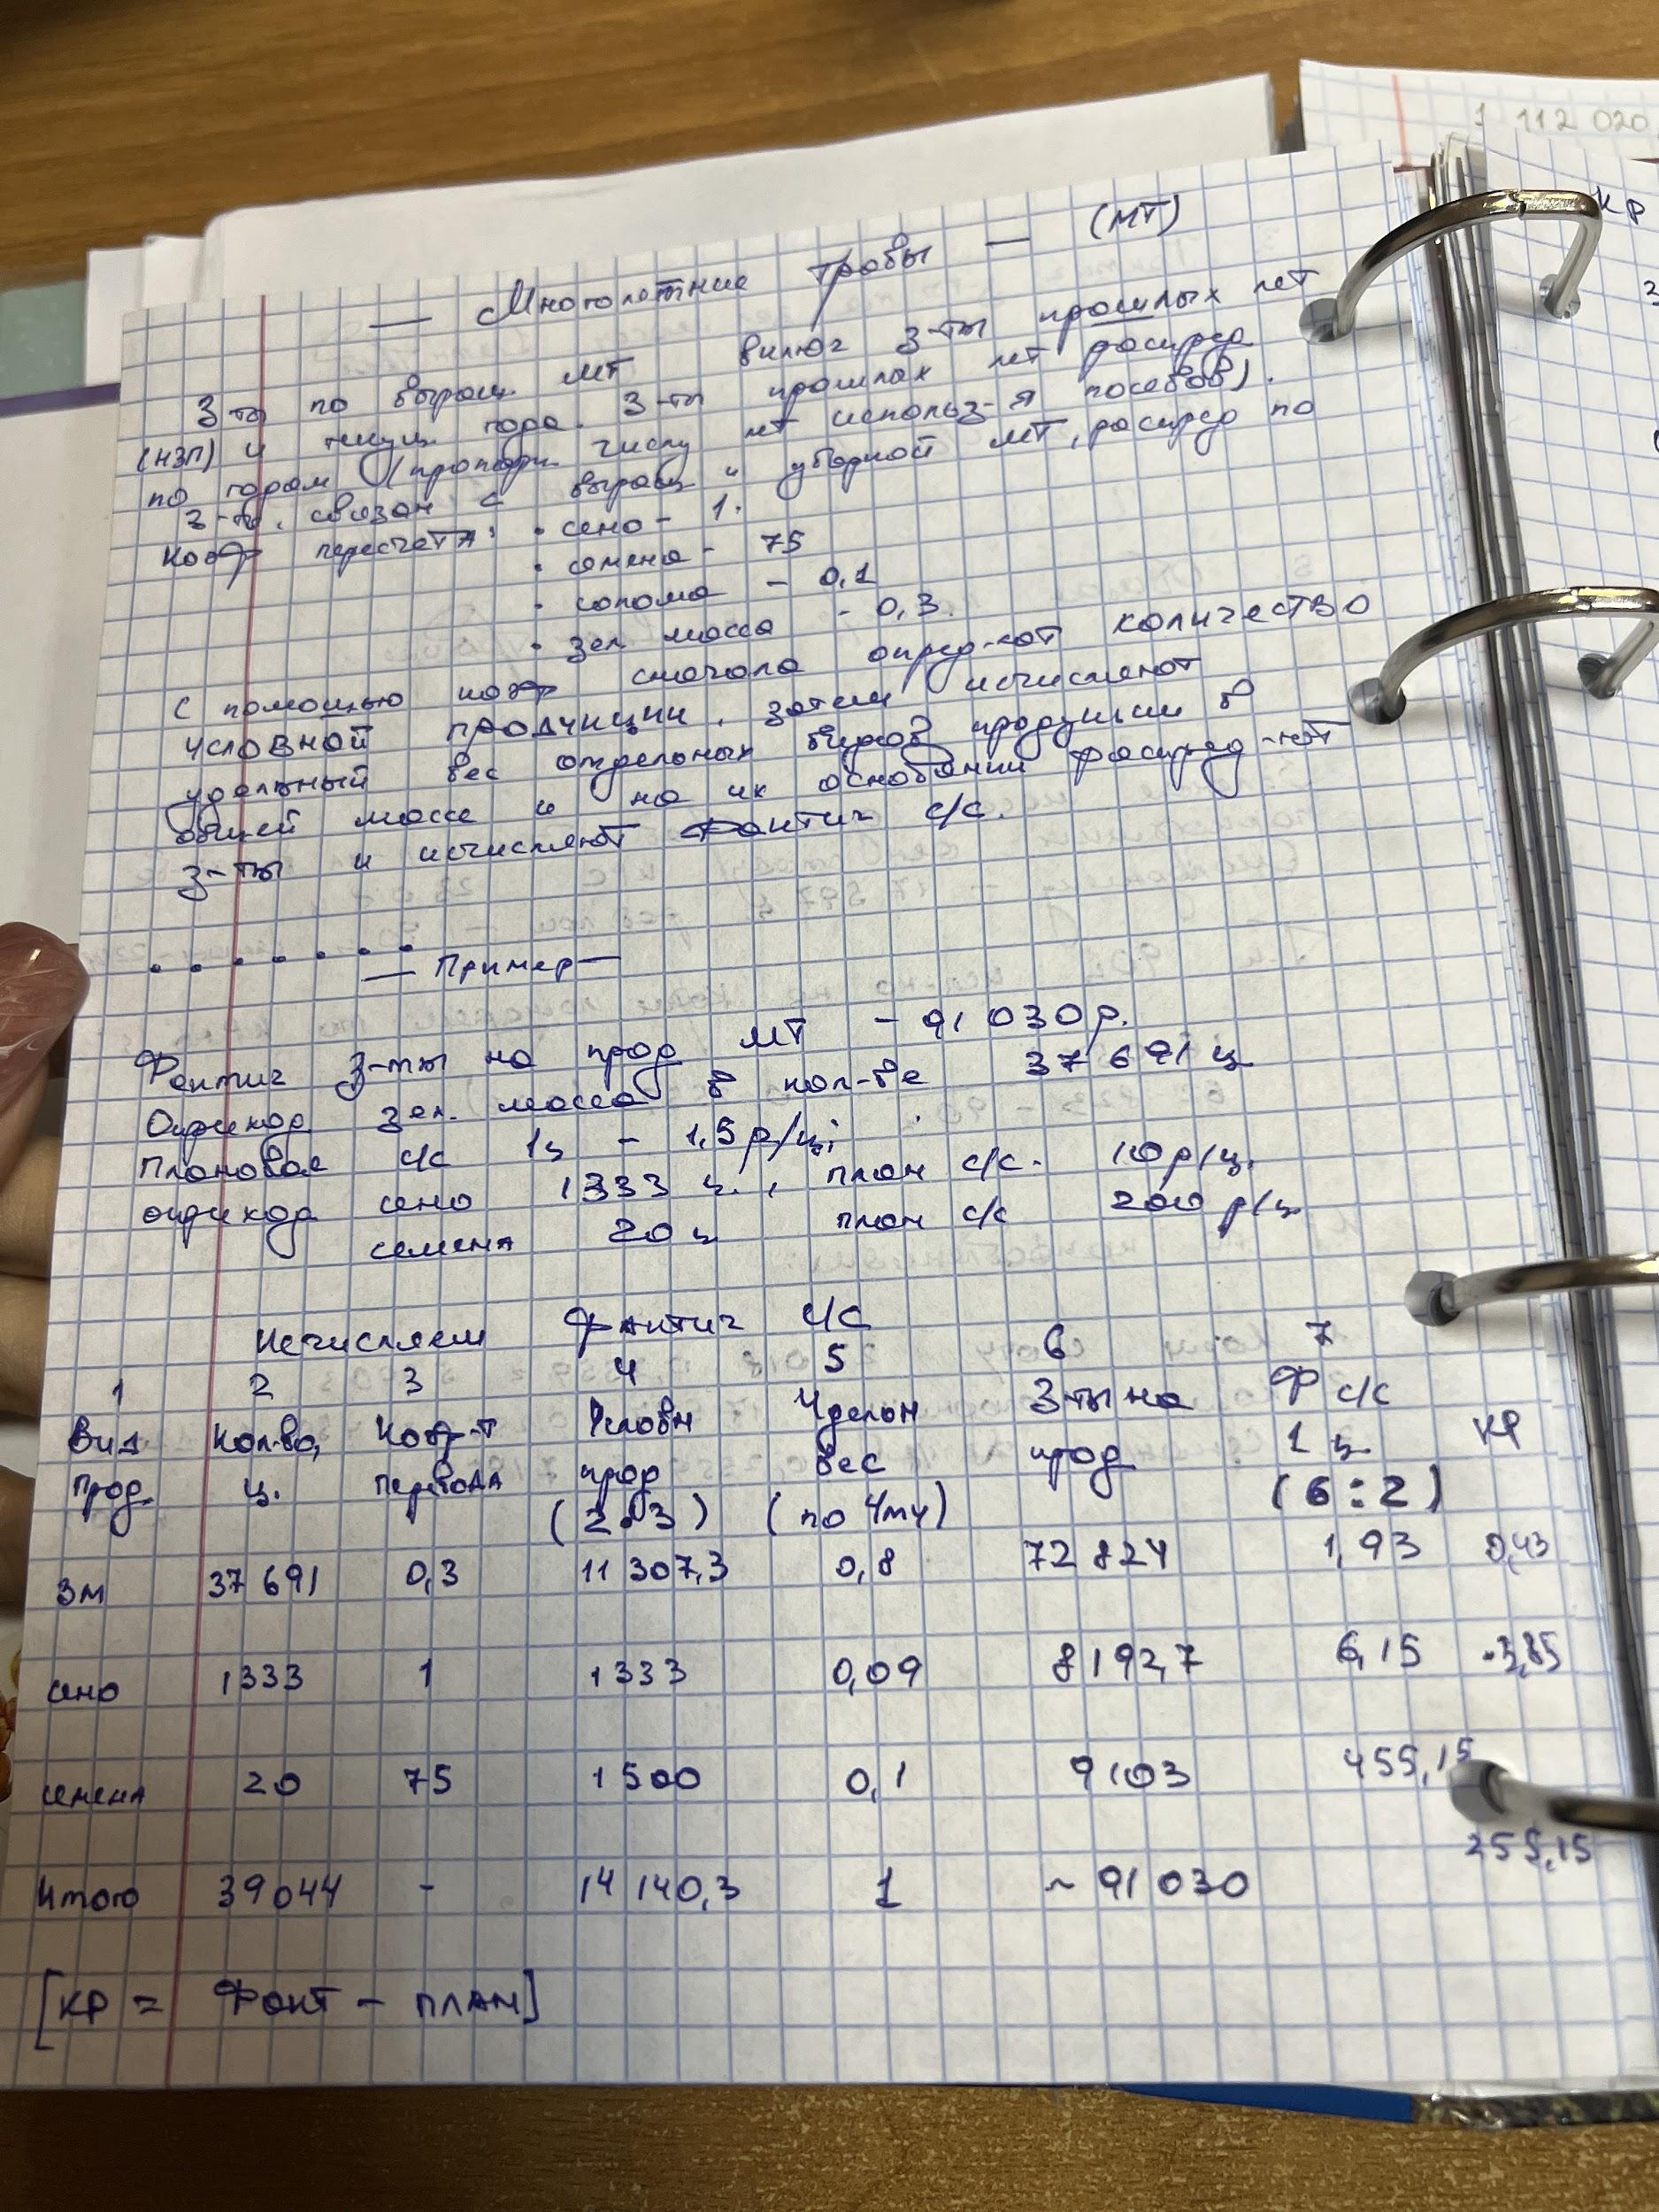 1 112 020
КР
— Многолетние травы — (МТ)
З-ты по выращ. МТ включ з-ты прошлых лет
(НЗП) и текущ. года. З-ты прошлых лет распред
по годам (пропорц. числу лет использ-я посевов).
З-ты, связан с выращ и уборкой МТ, распред по
Коэф пересчета: • сено - 1.
• семена - 75
• солома - 0,1
• зел. масса - 0,3.
С помощью коэф сначала опред-ют количество
условной продукции, затем исчисляют
удельный вес отдельных видов продукции в
общей массе и на их основании распред-ют
з-ты и исчисляют фактич с/с.
— Пример —
Фактич з-ты на прод МТ - 91 030 р.
Оприход зел. масса в кол-ве 37 691 ц
Плановая с/с 1ц - 1,5 р/ц;
оприход сено 1333 ц., план с/с. 10 р/ц.
семена 20 ц план с/с 200 р/ц.
Исчисляем фактич с/с
1 2 3 4 5 6 7
Вид Кол-во, Коэф-т Условн Удельн З-ты на Ф с/с КР
прод. ц. перевода прод вес прод 1 ц.
(2•3) (по 4му) (6:2)
Зм 37 691 0,3 11 307,3 0,8 72 824 1,93 0,43
сено 1333 1 1333 0,09 8192,7 6,15 -3,85
семена 20 75 1500 0,1 9103 455,15
255,15
Итого 39044 - 14 140,3 1 ~ 91 030
[КР = Факт - план]